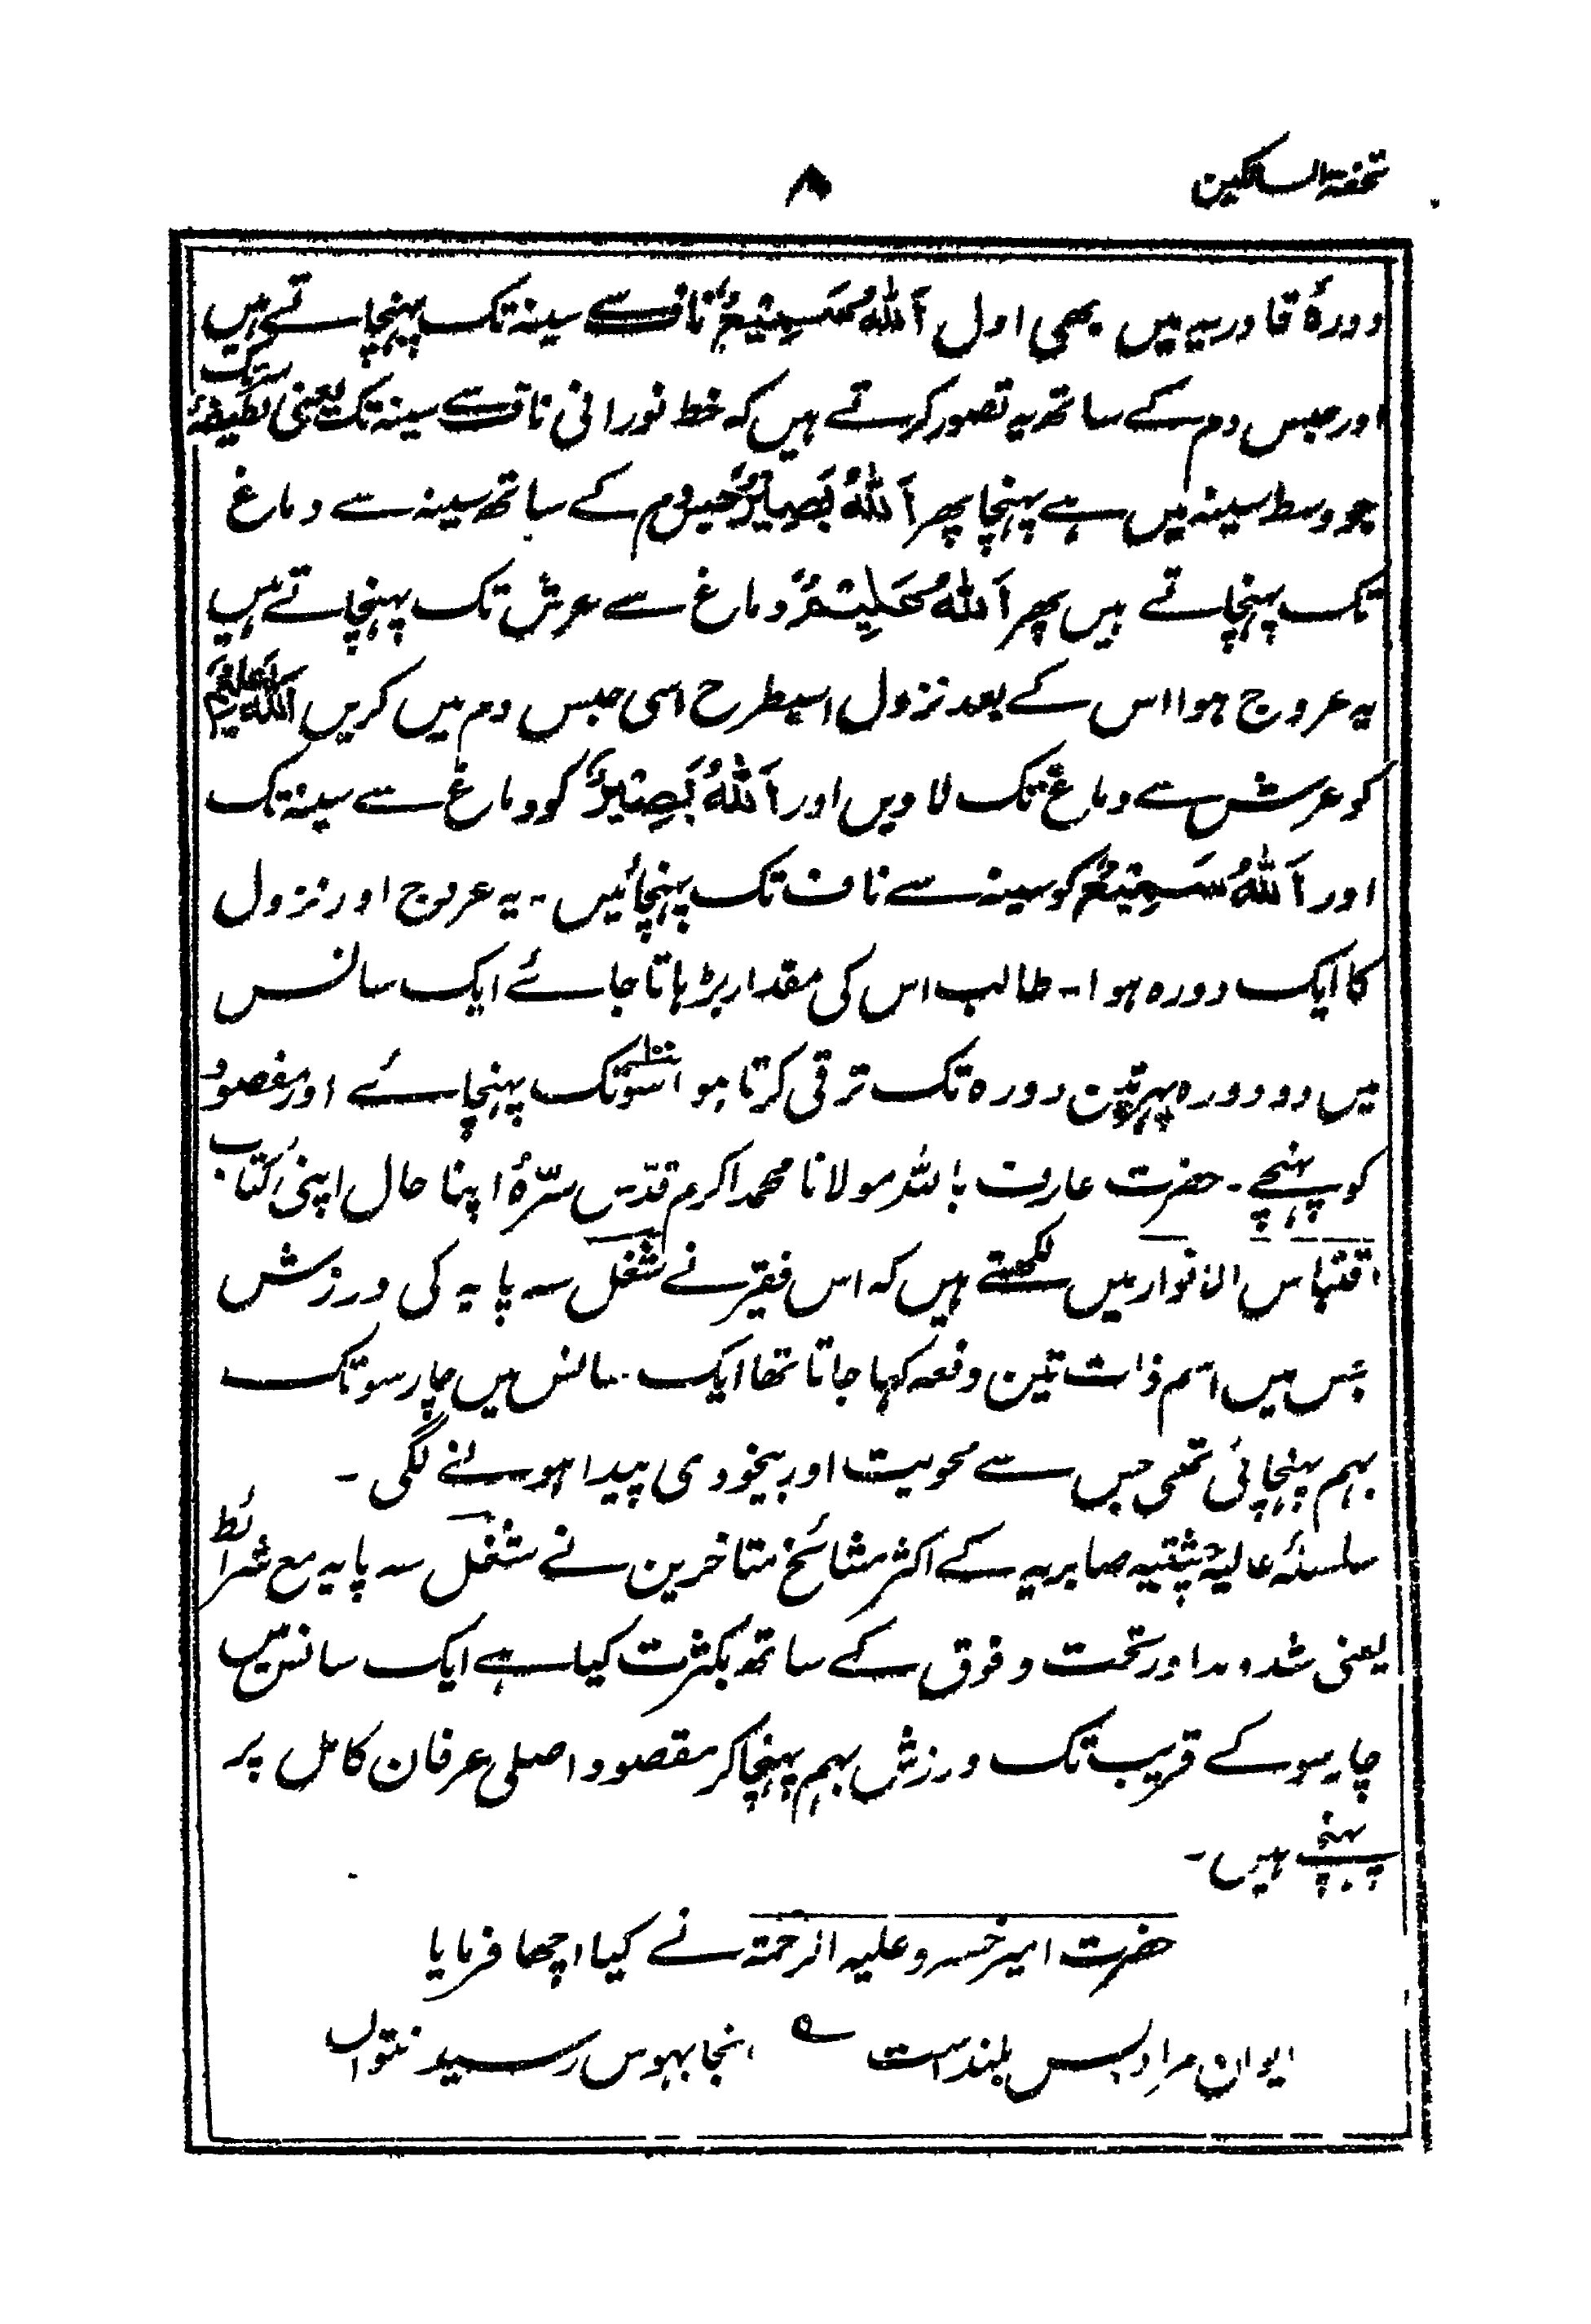 تحفۃ السالکین
۸
دورۂ قادریہ میں بھی اول اَللّٰهُ سَمِیْعٌ ناف سے سینہ تک پہنچاتے ہیں
اور حبس دم کے ساتھ یہ تصور کرتے ہیں کہ خط نورانی ناف سے سینہ تک یعنی لطیفۂ سر تک
جو وسط سینہ میں ہے پہنچا پھر اَللّٰهُ بَصِیْرٌ حبس دم کے ساتھ سینہ سے دماغ
تک پہنچاتے ہیں پھر اَللّٰهُ عَلِیْمٌ دماغ سے عرش تک پہنچاتے ہیں
یہ عروج ہوا اس کے بعد نزول اسیطرح اسی حبس دم میں کریں اَللّٰهُ عَلِیْمٌ
کو عرش سے دماغ تک لاویں اور اَللّٰهُ بَصِیْرٌ کو دماغ سے سینہ تک
اور اَللّٰهُ سَمِیْعٌ کو سینہ سے ناف تک پہنچائیں ۔ یہ عروج اور نزول
کا ایک دورہ ہوا ۔ طالب اس کی مقدار بڑہاتا جائے ایک سانس
میں دو دورہ پہر تین دورہ تک ترقی کرتا ہوا سو تک پہنچائے اور مقصود
کو پہنچے ۔ حضرت عارف باللہ مولانا محمد اکرم قدّس سرّہٗ اپنا حال اپنی کتاب
اقتباس الانوار میں لکھتے ہیں کہ اس فقیر نے شغل سہ پایہ کی ورزش
جس میں اسم ذات تین دفعہ کہا جاتا تھا ایک سانس میں چار سو تک
بہم پہنچائی تھی جس سے محویت اور بیخودی پیدا ہونے لگی ۔
سلسلۂ عالیہ چشتیہ صابریہ کے اکثر مشائخ متاخرین نے شغل سہ پایہ مع شرائط
یعنی شد و مد اور تحت و فوق کے ساتھ بکثرت کیا ہے ایک سانس میں
چار سو کے قریب تک ورزش بہم پہنچا کر مقصود اصلی عرفان کامل پر
پہنچے ہیں ۔
حضرت امیر خسرو علیہ الرحمۃ نے کیا اچھا فرمایا
ایوان مراد بس بلند است ؎ انجا بہوس رسید نتواں